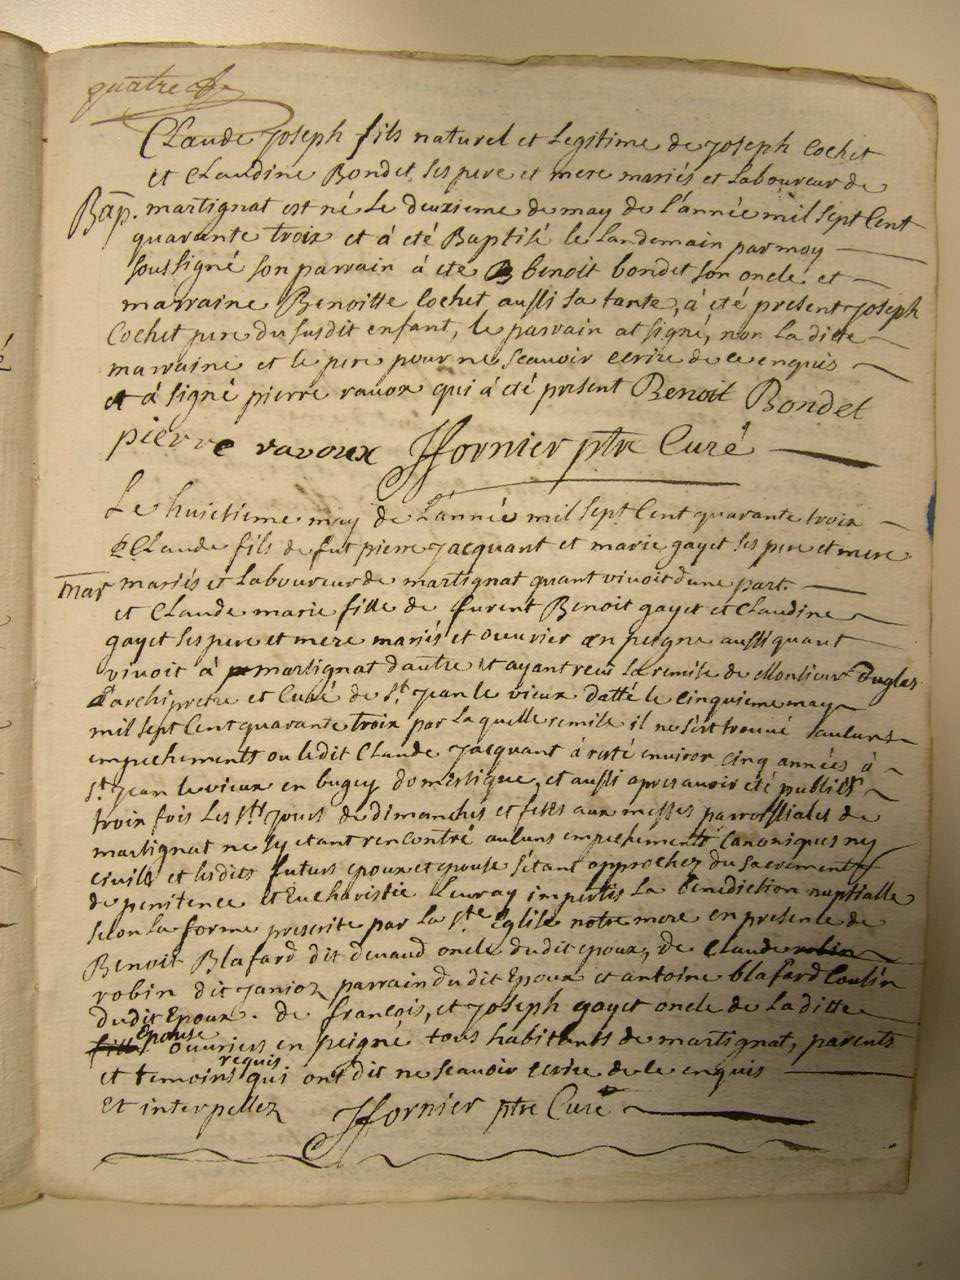 quatre
Claude Joseph fils naturel et legitime de Joseph Cochet
et Claudine Bondet, ses pere et mere mariés et Laboureur de
Bap. martignat est né Le deuxieme de may de l'année mil sept Cent
quarante troix et á été Baptisé le Landemain par moy
soussigné son parrain á été Benoit bondet son oncle et
marraine Benoitte Cochet aussi sa tante, á été present Joseph
Cochet pere du susdit enfant, le parrain at signé, non La ditte
marraine et le pere pour ne scauoir ecrire de ce enquis
et á signé pierre ravox qui á été present Benoit Bondet
pierre ravoux ffornier ptre Curé
Le huictieme may de L'année mil sept Cent quarante troix
Claude fils de fut pierre Jacquant et marie gayet ses pere et mere
mar mariés et Laboureur de martignat quant vivoit d'une part.
et Claude marie fille de furent Benoit gayet et Claudine
gayet ses pere et mere mariés et ouvrier en peigne aussi quant
vivoit á martignat d'autre et ayant receu La remise de Monsieur Duglas
archipretre et Curé de St. Jean le vieux datté le cinquieme may
mil sept Cent quarante troix par Laquelle remise il ne s'est trouvé aulcuns
empechements ou ledit Claude Jacquant á resté environ cinq années á
St. Jean le vieux en bugey domestique, et aussi apres avoir été publiés
troix fois Les Sts Jours de dimanches et fetes aux messes parrossiales de
martignat ne s'y etant rencontré aulcuns empechements Canoniques ny
Civils et lesdits futurs epoux et epouse s'etant approchez du sacrement
de penitence et Eucharistie Leur ay impertis La benediction nuptialle
selon La forme prescrite par La Ste Eglise notre mere en presence de
Benoit Blafard dit devaud oncle du dit epoux, de Claude robin
robin dit Janioz parrain du dit Epoux et antoine blafard Coulin
du dit Epoux. de françois, et Joseph gayet oncle de La ditte
fille Epouse ouvriers en peigne tous habitants de martignat, parents
et temoins requis qui ont dit ne scauoir ecrire de ce enquis
Et interpellez ffornier ptre Curé